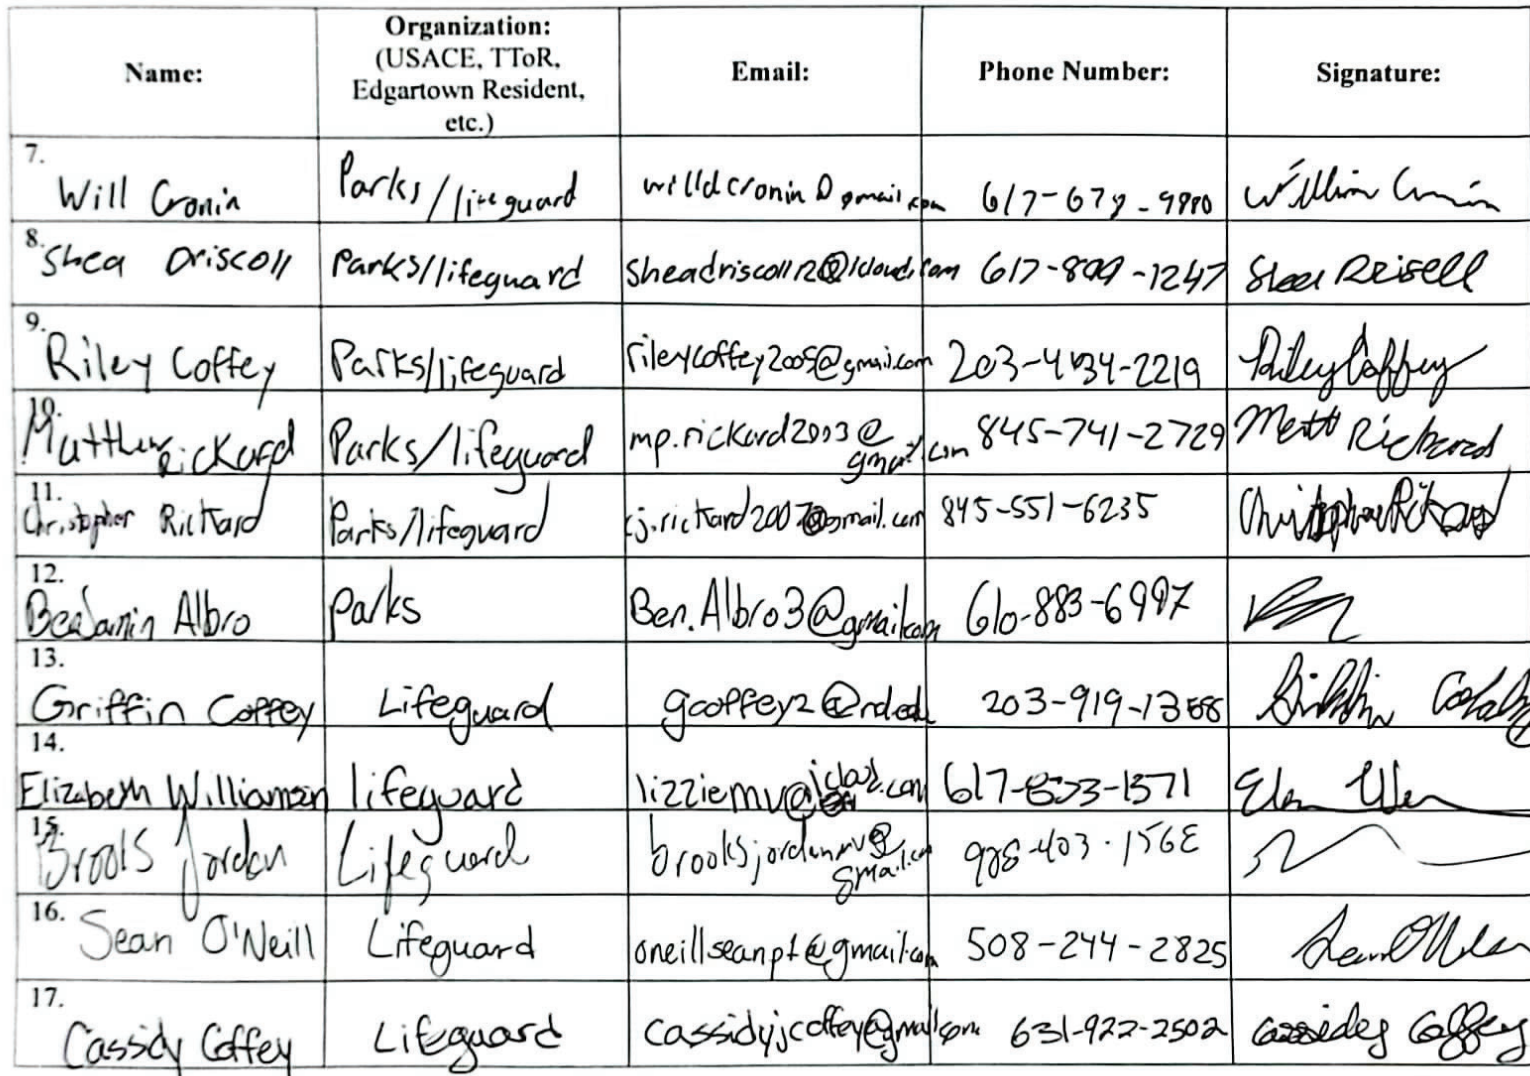 Name: Organization: (USACE, TToR, Edgartown Resident, etc.) Email: Phone Number: Signature:
7. Will Cronin Parks/lifeguard willdcronin@gmail.com
8. Shea Driscoll Parks/lifeguard 617-899-1247
9. Riley Coffey Parks/lifeguard rileycoffey2005@gmail.com Riley Coffey
10. Matthew Rickard Parks/lifeguard mp.rickard2003@gmail.com 845-741-2729 Matt Rickard
11. Christopher Rickard Parks/lifeguard cj.rickard2007@gmail.com 845-551-6235 Christopher Rickard
12. Benjamin Albro Parks Ben.Albro3@gmail.com 610-883-6997
13. Griffin Coffey Lifeguard
14. Elizabeth Williamson lifeguard lizziemv@icloud.com
15. Brooks Jordan Lifeguard brooksjordanmv@gmail.com
16. Sean O'Neill Lifeguard oneillseanpt@gmail.com 508-244-2825
17. Cassidy Coffey Lifeguard cassidyjcoffey@gmail.com 631-922-2502 Cassidy Coffey